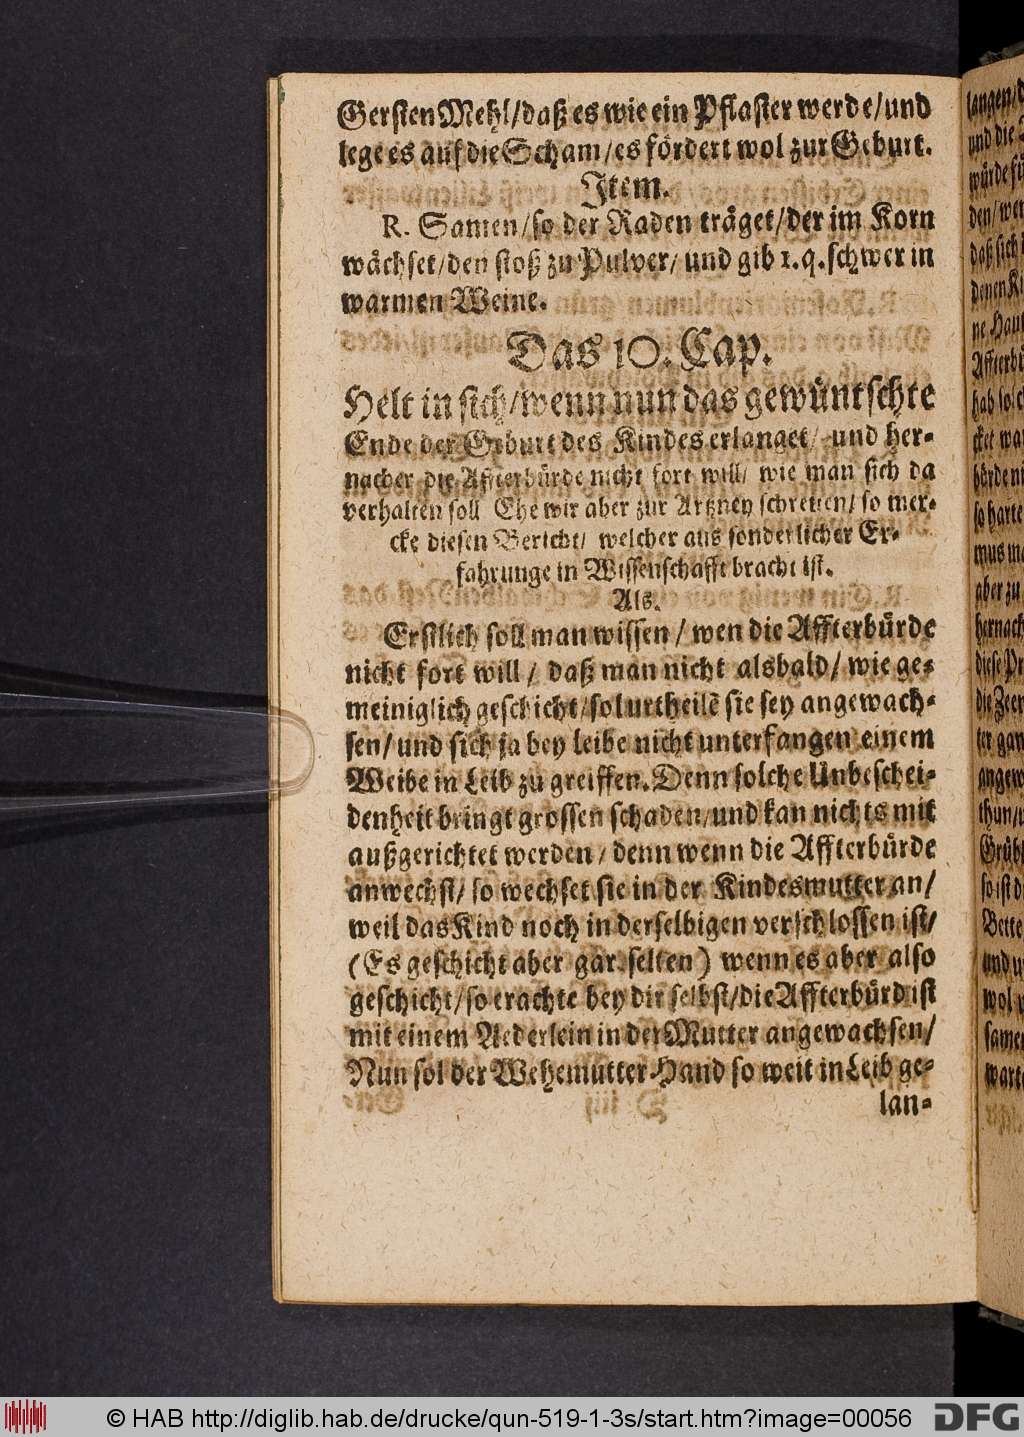 Gersten Mehl/daß es wie ein Pflaster werde/und
lege es auf die Scham/es fördert wol zur Geburt.
Item.
R. Samen/so der Raden träget/der im Korn
wächset/den stoß zu Pulver/und gib 1.q.schwer in
warmen Weine.
Das 10. Cap.
Helt in sich/wenn nun das gewüntschte
Ende der Geburt des Kindes erlanget/und her-
nacher die Affterbürde nicht fort will/ wie man sich da
verhalten soll Ehe wir aber zur Artzney schreiten/ so mer-
cke diesen Bericht/ welcher aus sonderlicher Er-
fahrunge in Wissenschafft bracht ist.
Als.
Erstlich soll man wissen / wen die Affterbürde
nicht fort will / daß man nicht alsbald/ wie ge-
meiniglich geschicht/sol urtheilẽ sie sey angewach-
sen/und sich ja bey leibe nicht unterfangen einem
Weibe in Leib zu greiffen. Denn solche Unbeschei-
denheit bringt grossen schaden/und kan nichts mit
außgerichtet werden/ denn wenn die Affterbürde
anwechst/ so wechset sie in der Kindesmutter an/
weil das Kind noch in derselbigen verschlossen ist/
(Es geschicht aber gar selten) wenn es aber also
geschicht/so erachte bey dir selbst/die Affterbürd ist
mit einem Aederlein in der Mutter angewachsen/
Nun sol der Wehemutter Hand so weit in Leib ge-
lan-
© HAB http://diglib.hab.de/drucke/qun-519-1-3s/start.htm?image=00056
DFG